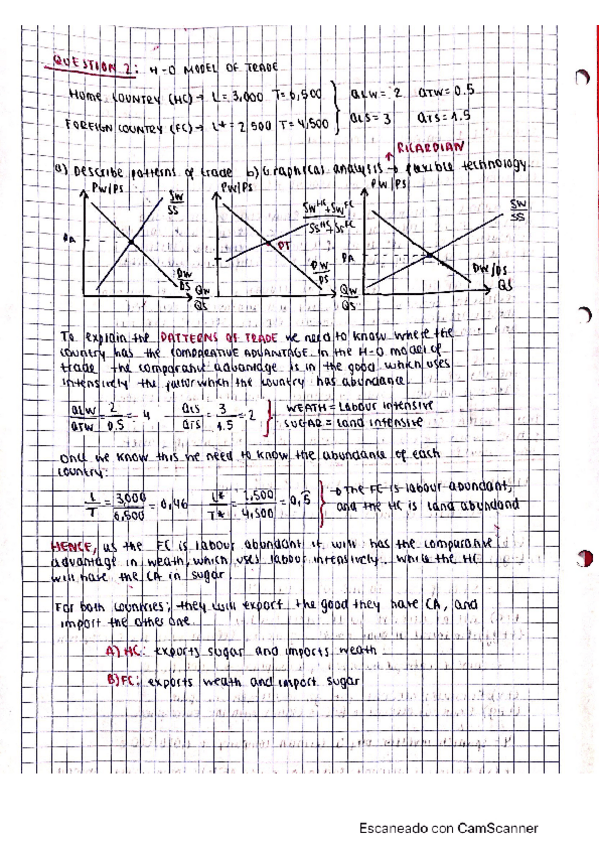 QUESTION 2: H-O MODEL OF TRADE
HOME COUNTRY (HC) → L = 3,000 T = 6,500 aLW = 2 aTW = 0.5
FOREIGN COUNTRY (FC) → L* = 2,500 T = 4,500 aLS = 3 aTS = 1.5
RICARDIAN
a) Describe patterns of trade b) Graphical analysis → flexible technology
PW/PS PW/PS PW/PS
SW/SS SW^HC+SW^FC/SS^HC+SS^FC SW/SS
PA PT PA
DW/DS DW/DS DW/DS
QW/QS QW/QS QS
To explain the PATTERNS OF TRADE we need to know where the
country has the COMPARATIVE ADVANTAGE in the H-O model of
trade the comparative advantage is in the good which uses
intensively the factor which the country has abundance
aLW/aTW = 2/0.5 = 4 aLS/aTS = 3/1.5 = 2 WEATH = Labour intensive
SUGAR = Land intensive
Once we know this we need to know the abundance of each
country:
L/T = 3,000/6,500 = 0,46 L*/T* = 2,500/4,500 = 0,5 → The FC is labour abundant,
and the HC is land abundand
HENCE, as the FC is labour abundant it will has the comparative
advantage in weath, which uses labour intensively. while the HC
will have the CA in sugar
For both countries, they will export the good they have CA, and
import the other one
A) HC: exports sugar and imports weath
B) FC: exports weath and import sugar
Escaneado con CamScanner